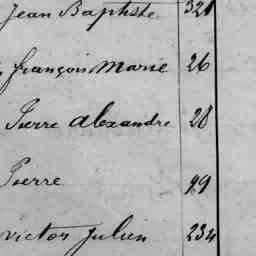 Jean Baptiste 321
françois Marie 26
Pierre alexandre 28
Pierre 99
victor Julien 234